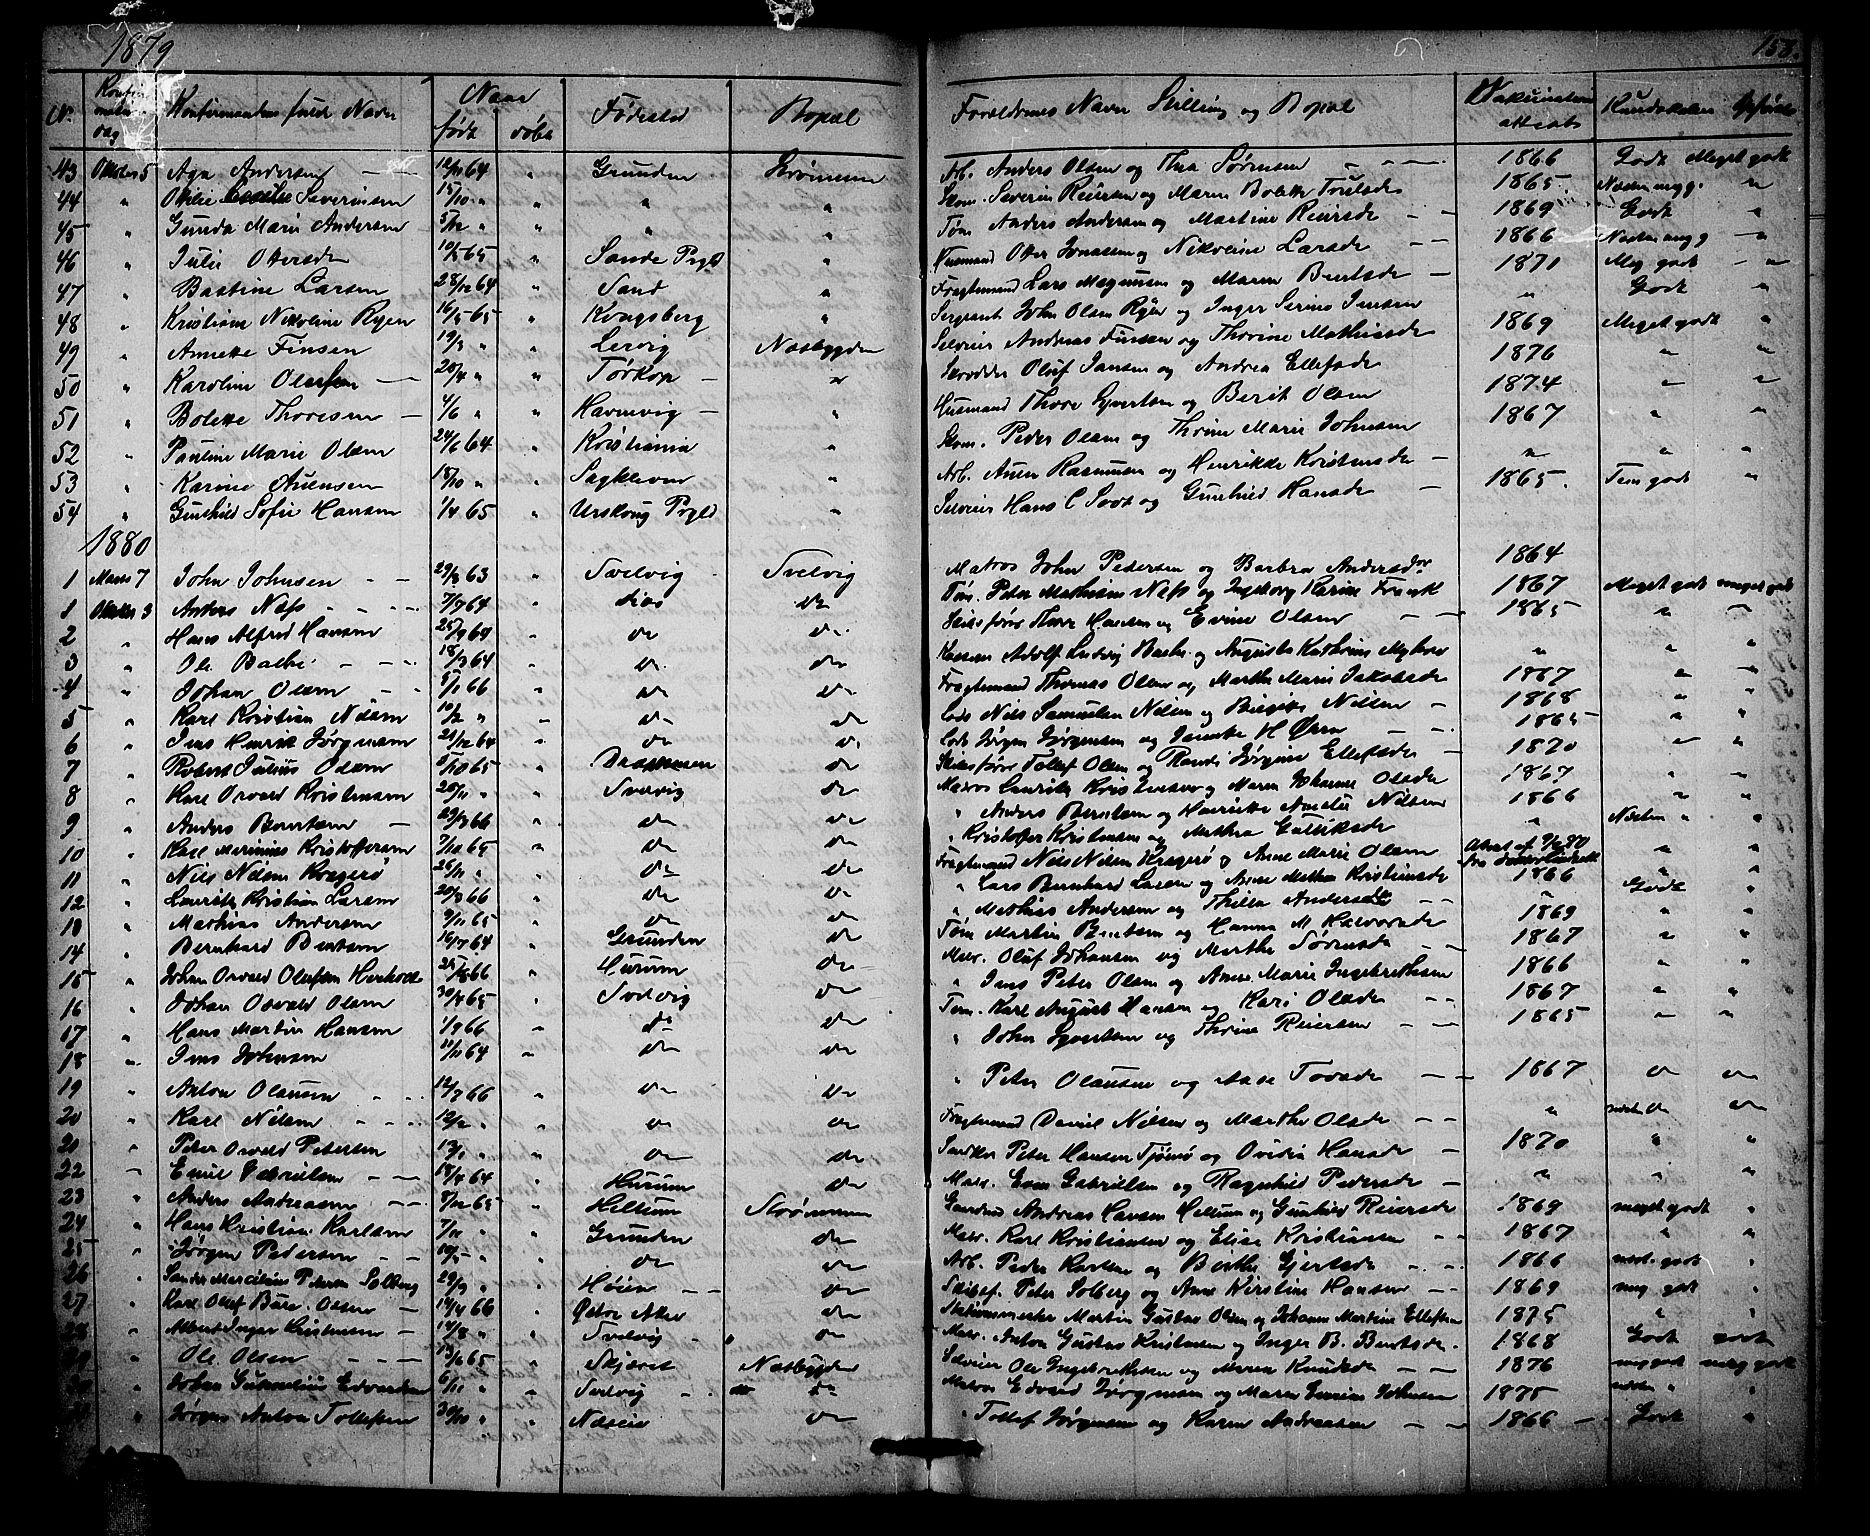 1879
153.
Nr. Konfirmations dag Konfirmandens fulde Navn Naar født døbt Fødested Bopæl Forældrenes Navn Stilling og Bopæl Vakcinations attests Kundskaber Opførsel
43 Oktober 5 Aga Andersen 12/11 64 " Grunden Strømmen Arb. Anders Olsen og Thea Sørensen 1866 Godt Meget godt
44 " Otilie Severinsen 15/10 " " " " Skom. Severin Reiersen og Maren Bolette Truelsdr 1865. Næsten meg g. "
45 " Gunda Marie Andersen 5/12 " " " " Tøm Anders Andersen og Martine Reiersdr 1869 Godt "
46 " Julie Ottersdr 10/5 65 " Sande Prgld " Husmand Otter Jonassen og Nikoline Larsdr 1866 Næsten meg g "
47 " Bastine Larsen 28/12 64 " Sand " Fragtemand Lars Magnussen og Maren Berthsdr 1871 Meg godt "
48 " Kristiane Nikoline Ryen 16/5 65 " Kongsberg " Sergeant John Olsen Ryen og Inger Serine Jensen " Godt "
49 " Annette Finsen 19/3 " " Lervig Nesbygden Selveier Andreas Finsen og Thorine Mathisdr 1869 Meget godt "
50 " Karoline Olufsen 28/4 " " Torkop " Skrædder Oluf Jansen og Andrea Ellefsdr 1876 " "
51 " Bolette Thoresen 4/6 " " Havnevig " Husmand Thore Syvertsen og Berit Olsen 1874 " "
52 " Pauline Marie Olsen 24/6 64 " Kristiania " Skom. Peder Olsen og Thrine Marie Johnsen 1867 " "
53 " Karine Auensen 18/10 " " Sagkleven " Arb. Auen Rasmussen og Henrikke Kristensdr " " "
54 " Gunhild Sofie Hansen 1/4 65 " Urskoug Prgld " Selveier Hans C Soot og Gunhild Hansdr 1865. Tem godt "
1880
1 Marts 7 John Johnsen 29/8 63 " Svelvig Svelvig Matros John Pedersen og Barbra Andersdr 1864
1 Oktober 3 Anders Næss 7/7 64 " do do Tøm. Peter Mathisen Næss og Ingeborg Karine Frank 1867 Meget godt meget godt
2 " Hans Alfred Hansen 25/9 64 " do do Skibsfører Thore Hansen og Evine Olsen 1865 " "
3 " Ole Bache 18/3 64 " do do Adolf Ludvig Bache og Augusta Kathrine Myhre " " "
4 " Johan Olsen 5/11 66 " do do Fragtemand Thomas Olsen og Marthe Marie Jakobsdr 1867 " "
5 " Karl Kristian Nilsen 10/2 " " do do Lods Nils Samuelsen Nilsen og Birgitte Nilsen 1868 " "
6 " Jens Henrik Jørgensen 21/12 64 " do do Lods Jørgen Jørgensen og Jannette H Øren 1865 " "
7 " Robert Julius Olsen 5/10 65 " Drammen do Skibsfører Tollef Olsen og Randi Jørgine Ellefsdr 1870 " "
8 " Karl Osvald Kristensen 20/11 " " Svelvig do Matros Lauritz Kristensen og Maren Johanne Olsdr 1867 " "
9 " Anders Berntsen 29/3 66 " do do " Anders Berntsen og Henrikke Amalie Nilsen 1866 " "
10 " Karl Marinius Kristoffersen 7/10 65 " do do " Kristoffer Kristensen og Mathea Gulliksdr " Næsten " "
11 " Nils Nilsen Kragerø 25/11 " " do do Fragtemand Nils Nilsen Kragerø og Anne Marie Olsen Attest af 9/6 80 fra " "
12 " Lauritz Kristian Larsen 20/3 66 " do do " Lars Bernhard Larsen og Anne Mathea Kristensdr 1866 " "
13 " Mathias Andersen 9/11 65 " do do " Mathias Andersen og Thilla Andersdr " Godt "
14 " Bernhard Berntsen 16/7 64 " Grunden do Tøm Martin Berntsen og Hanna M. Halvorsdr 1869 " "
15 " Johan Osvald Olufsen 25/8 66 " Hurum do Matr. Oluf Johansen og Marthe Sørensdr 1867 " "
16 " Johan Osvald Olsen 30/8 65 " Svelvig do " Jens Peter Olsen og Anne Marie Ingebrethsen 1866 " "
17 " Hans Martin Hansen 1/9 66 " do do Tøm. Karl August Hansen og Kari Olsdr 1867 " "
18 " Jens Johnsen 11/11 64 " do do " John Syvertsen og Thrine Reiersen 1865 " "
19 " Anton Olausen 12/3 66 " do do " Peter Olausen og Aase Tovsdr 1867 do do
20 " Karl Nilsen 12/2 " " do do Fragtemand Daniel Nilsen og Marthe Olsdr " næsten do do
20 " Peter Osvald Petersen 13/1 " " do do Peter Hansen Tjømø og Ovidia Hansdr 1870 " "
22 " Emil Gabrielsen 18/4 64 " Hurum do Matr. Even Gabrielsen og Ragnhild Pedersdr " " "
23 " Anders Andreasen 8/12 65 " Hellum Strømmen Gaardmd Andreas Hansen Hellum og Gunhild Reiersdr 1869 meget godt "
24 " Hans Kristian Karlsen 7/11 " " Grunden do Matr. Karl Kristiansen og Elise Kristiansen 1867 " "
25 " Jørgen Pedersen 10/5 " " do do Arb. Peder Karlsen og Berthe Gjertsdr 1866 næst. godt "
26 " Sander Marcelius Petersen Solberg 29/9 " " Høien do Skibsf. Peter Solberg og Anne Kirstine Hansen 1869 meg godt "
27 " Karl Olaf Bure Olsen 14/4 66 " Østre Aker do Stationsmester Martin Gustav Olsen og Johanne Martine Ellefsen 1875 " "
28 " Albert Inger Kristensen 14/8 " " Svelvig do Matr. Anton Gustav Kristensen og Inger B. Berntsdr. 1868 Godt godt
29 " Ole Olsen 13/6 65 " Skjæret Nesbygden Selveier Ole Ingebrethsen og Maren Knudsdr 1876 meg godt meg godt
30 " Johan Edvardsen 6/11 " " Svelvig do Matros Edvard Jørgensen og Maren Johnsen 1875 næsten " "
31 " Jørgen Anton Tollefsen 30/10 " " Næseie do " Tollef Jørgensen og Karen Andreasen 1866 Godt "